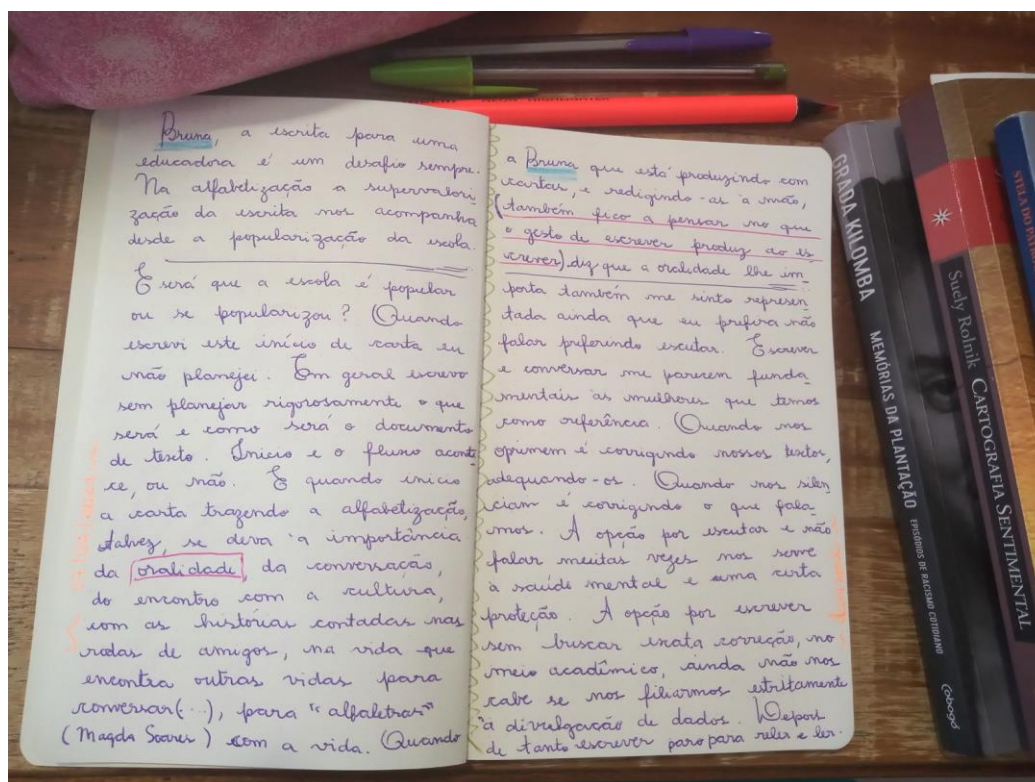 Bruna, a escrita para uma
educadora é um desafio sempre.
Na alfabetização a supervalori
zação da escrita nos acompanha
desde a popularização da escola.
E será que a escola é popular
ou se popularizou? (Quando
escrevi este início de carta eu
não planejei. Em geral escrevo
sem planejar rigorosamente o que
será e como será o documento
de texto. Inicio e o fluxo aconte
ce, ou não. E quando inicio
a carta trazendo a alfabetização,
talvez, se deva à importância
da oralidade, da conversação,
do encontro com a cultura,
com as histórias contadas nas
rodas de amigos, na vida que
encontra outras vidas para
conversar(...), para "alfaletrar"
(Magda Soares) com a vida. (Quando
a Bruna que está produzindo com
cartas, e redigindo-as à mão,
(também fico a pensar no que
o gesto de escrever produz ao es
crever) diz que a oralidade lhe im
porta também me sinto represen
tada ainda que eu prefira não
falar preferindo escutar. Escrever
e conversar me parecem funda
mentais às mulheres que temos
como referência. (Quando nos
oprimem é corrigindo nossos textos,
adequando-os. (Quando nos silen
ciam é corrigindo o que fala
mos. A opção por escutar e não
falar muitas vezes nos serve
à saúde mental e uma certa
proteção. A opção por escrever
sem buscar exata correção, no
meio acadêmico, ainda não nos
cabe se nos filiarmos estritamente
à divulgação de dados. Depois
de tanto escrever paro para reler e ler.
GRADA KILOMBA MEMÓRIAS DA PLANTAÇÃO EPISÓDIOS DE RACISMO COTIDIANO Cobogó
Suely Rolnik CARTOGRAFIA SENTIMENTAL
STELA DO